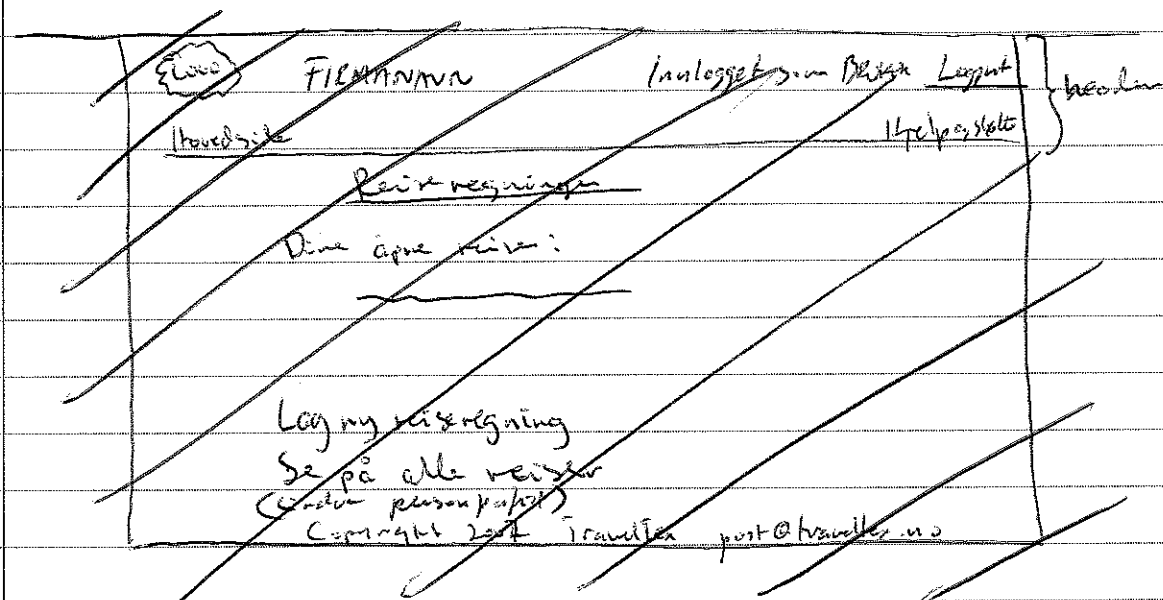 Logo FIRMANAVN Innlogget som BRUKER Logg ut
header
Hovedside Hjelp og støtte
Reiseregninger
Dine åpne reiser:
Lag ny reiseregning
Se på alle reiser
(Endre personprofil)
Copyright Travellex post@travellex.no